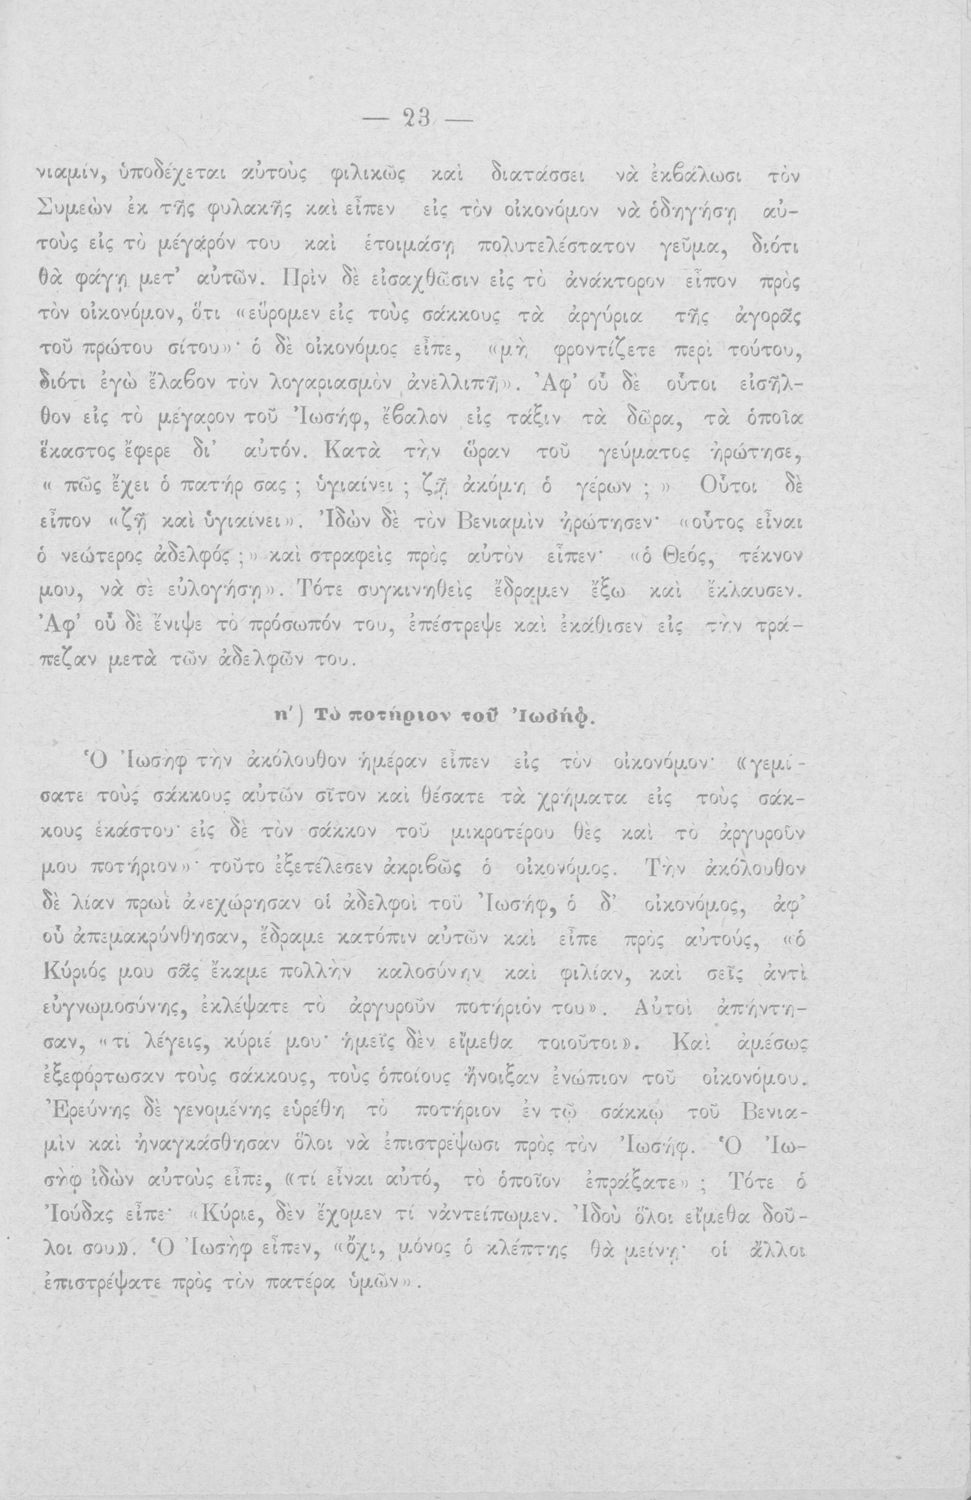 — 23 —
νιαμίν, ὑποδέχεται αὐτοὺς φιλικῶς καὶ διατάσσει νὰ ἐκβάλωσι τὸν
Συμεὼν ἐκ τῆς φυλακῆς καὶ εἶπεν εἰς τὸν οἰκονόμον νὰ ὁδηγήσῃ αὐ-
τοὺς εἰς τὸ μέγαρόν του καὶ ἑτοιμάσῃ πολυτελέστατον γεῦμα, διότι
θὰ φάγῃ μετ’ αὐτῶν. Πρὶν δὲ εἰσαχθῶσιν εἰς τὸ ἀνάκτορον εἶπον πρὸς
τὸν οἰκονόμον, ὅτι «εὕρομεν εἰς τοὺς σάκκους τὰ ἀργύρια τῆς ἀγορᾶς
τοῦ πρώτου σίτου»· ὁ δὲ οἰκονόμος εἶπε, «μὴ φροντίζετε περὶ τούτου,
διότι ἐγὼ ἔλαβον τὸν λογαριασμὸν ἀνελλιπῆ». Ἀφ’ οὗ δὲ οὗτοι εἰσῆλ-
θον εἰς τὸ μέγαρον τοῦ Ἰωσήφ, ἔβαλον εἰς τάξιν τὰ δῶρα, τὰ ὁποῖα
ἕκαστος ἔφερε δι’ αὐτόν. Κατὰ τὴν ὥραν τοῦ γεύματος ἠρώτησε,
« πῶς ἔχει ὁ πατήρ σας ; ὑγιαίνει ; ζῇ ἀκόμη ὁ γέρων ; » Οὗτοι δὲ
εἶπον «ζῇ καὶ ὑγιαίνει». Ἰδὼν δὲ τὸν Βενιαμὶν ἠρώτησεν· «οὗτος εἶναι
ὁ νεώτερος ἀδελφός ;» καὶ στραφεὶς πρὸς αὐτὸν εἶπεν· «ὁ Θεός, τέκνον
μου, νὰ σὲ εὐλογήσῃ». Τότε συγκινηθεὶς ἔδραμεν ἔξω καὶ ἔκλαυσεν.
Ἀφ’ οὗ δὲ ἔνιψε τὸ πρόσωπόν του, ἐπέστρεψε καὶ ἐκάθισεν εἰς τὴν τρά-
πεζαν μετὰ τῶν ἀδελφῶν του.
η’) Τὸ ποτήριον τοῦ Ἰωσήφ.
Ὁ Ἰωσὴφ τὴν ἀκόλουθον ἡμέραν εἶπεν εἰς τὸν οἰκονόμον· «γεμί-
σατε τοὺς σάκκους αὐτῶν σῖτον καὶ θέσατε τὰ χρήματα εἰς τοὺς σάκ-
κους ἑκάστου· εἰς δὲ τὸν σάκκον τοῦ μικροτέρου θὲς καὶ τὸ ἀργυροῦν
μου ποτήριον»· τοῦτο ἐξετέλεσεν ἀκριβῶς ὁ οἰκονόμος. Τὴν ἀκόλουθον
δὲ λίαν πρωὶ ἀνεχώρησαν οἱ ἀδελφοὶ τοῦ Ἰωσήφ, ὁ δ’ οἰκονόμος, ἀφ’
οὗ ἀπεμακρύνθησαν, ἔδραμε κατόπιν αὐτῶν καὶ εἶπε πρὸς αὐτούς, «ὁ
Κύριός μου σᾶς ἔκαμε πολλὴν καλοσύνην καὶ φιλίαν, καὶ σεῖς ἀντὶ
εὐγνωμοσύνης, ἐκλέψατε τὸ ἀργυροῦν ποτήριόν του». Αὐτοὶ ἀπήντη-
σαν, «τί λέγεις, κύριέ μου· ἡμεῖς δὲν εἴμεθα τοιοῦτοι». Καὶ ἀμέσως
ἐξεφόρτωσαν τοὺς σάκκους, τοὺς ὁποίους ἤνοιξαν ἐνώπιον τοῦ οἰκονόμου.
Ἐρεύνης δὲ γενομένης εὑρέθη τὸ ποτήριον ἐν τῷ σάκκῳ τοῦ Βενια-
μὶν καὶ ἠναγκάσθησαν ὅλοι νὰ ἐπιστρέψωσι πρὸς τὸν Ἰωσήφ. Ὁ Ἰω-
σὴφ ἰδὼν αὐτοὺς εἶπε, «τί εἶναι αὐτό, τὸ ὁποῖον ἐπράξατε» ; Τότε ὁ
Ἰούδας εἶπε· «Κύριε, δὲν ἔχομεν τί νἀντείπωμεν. Ἰδοὺ ὅλοι εἴμεθα δοῦ-
λοι σου». Ὁ Ἰωσὴφ εἶπεν, «ὄχι, μόνος ὁ κλέπτης θὰ μείνῃ· οἱ ἄλλοι
ἐπιστρέψατε πρὸς τὸν πατέρα ὑμῶν».